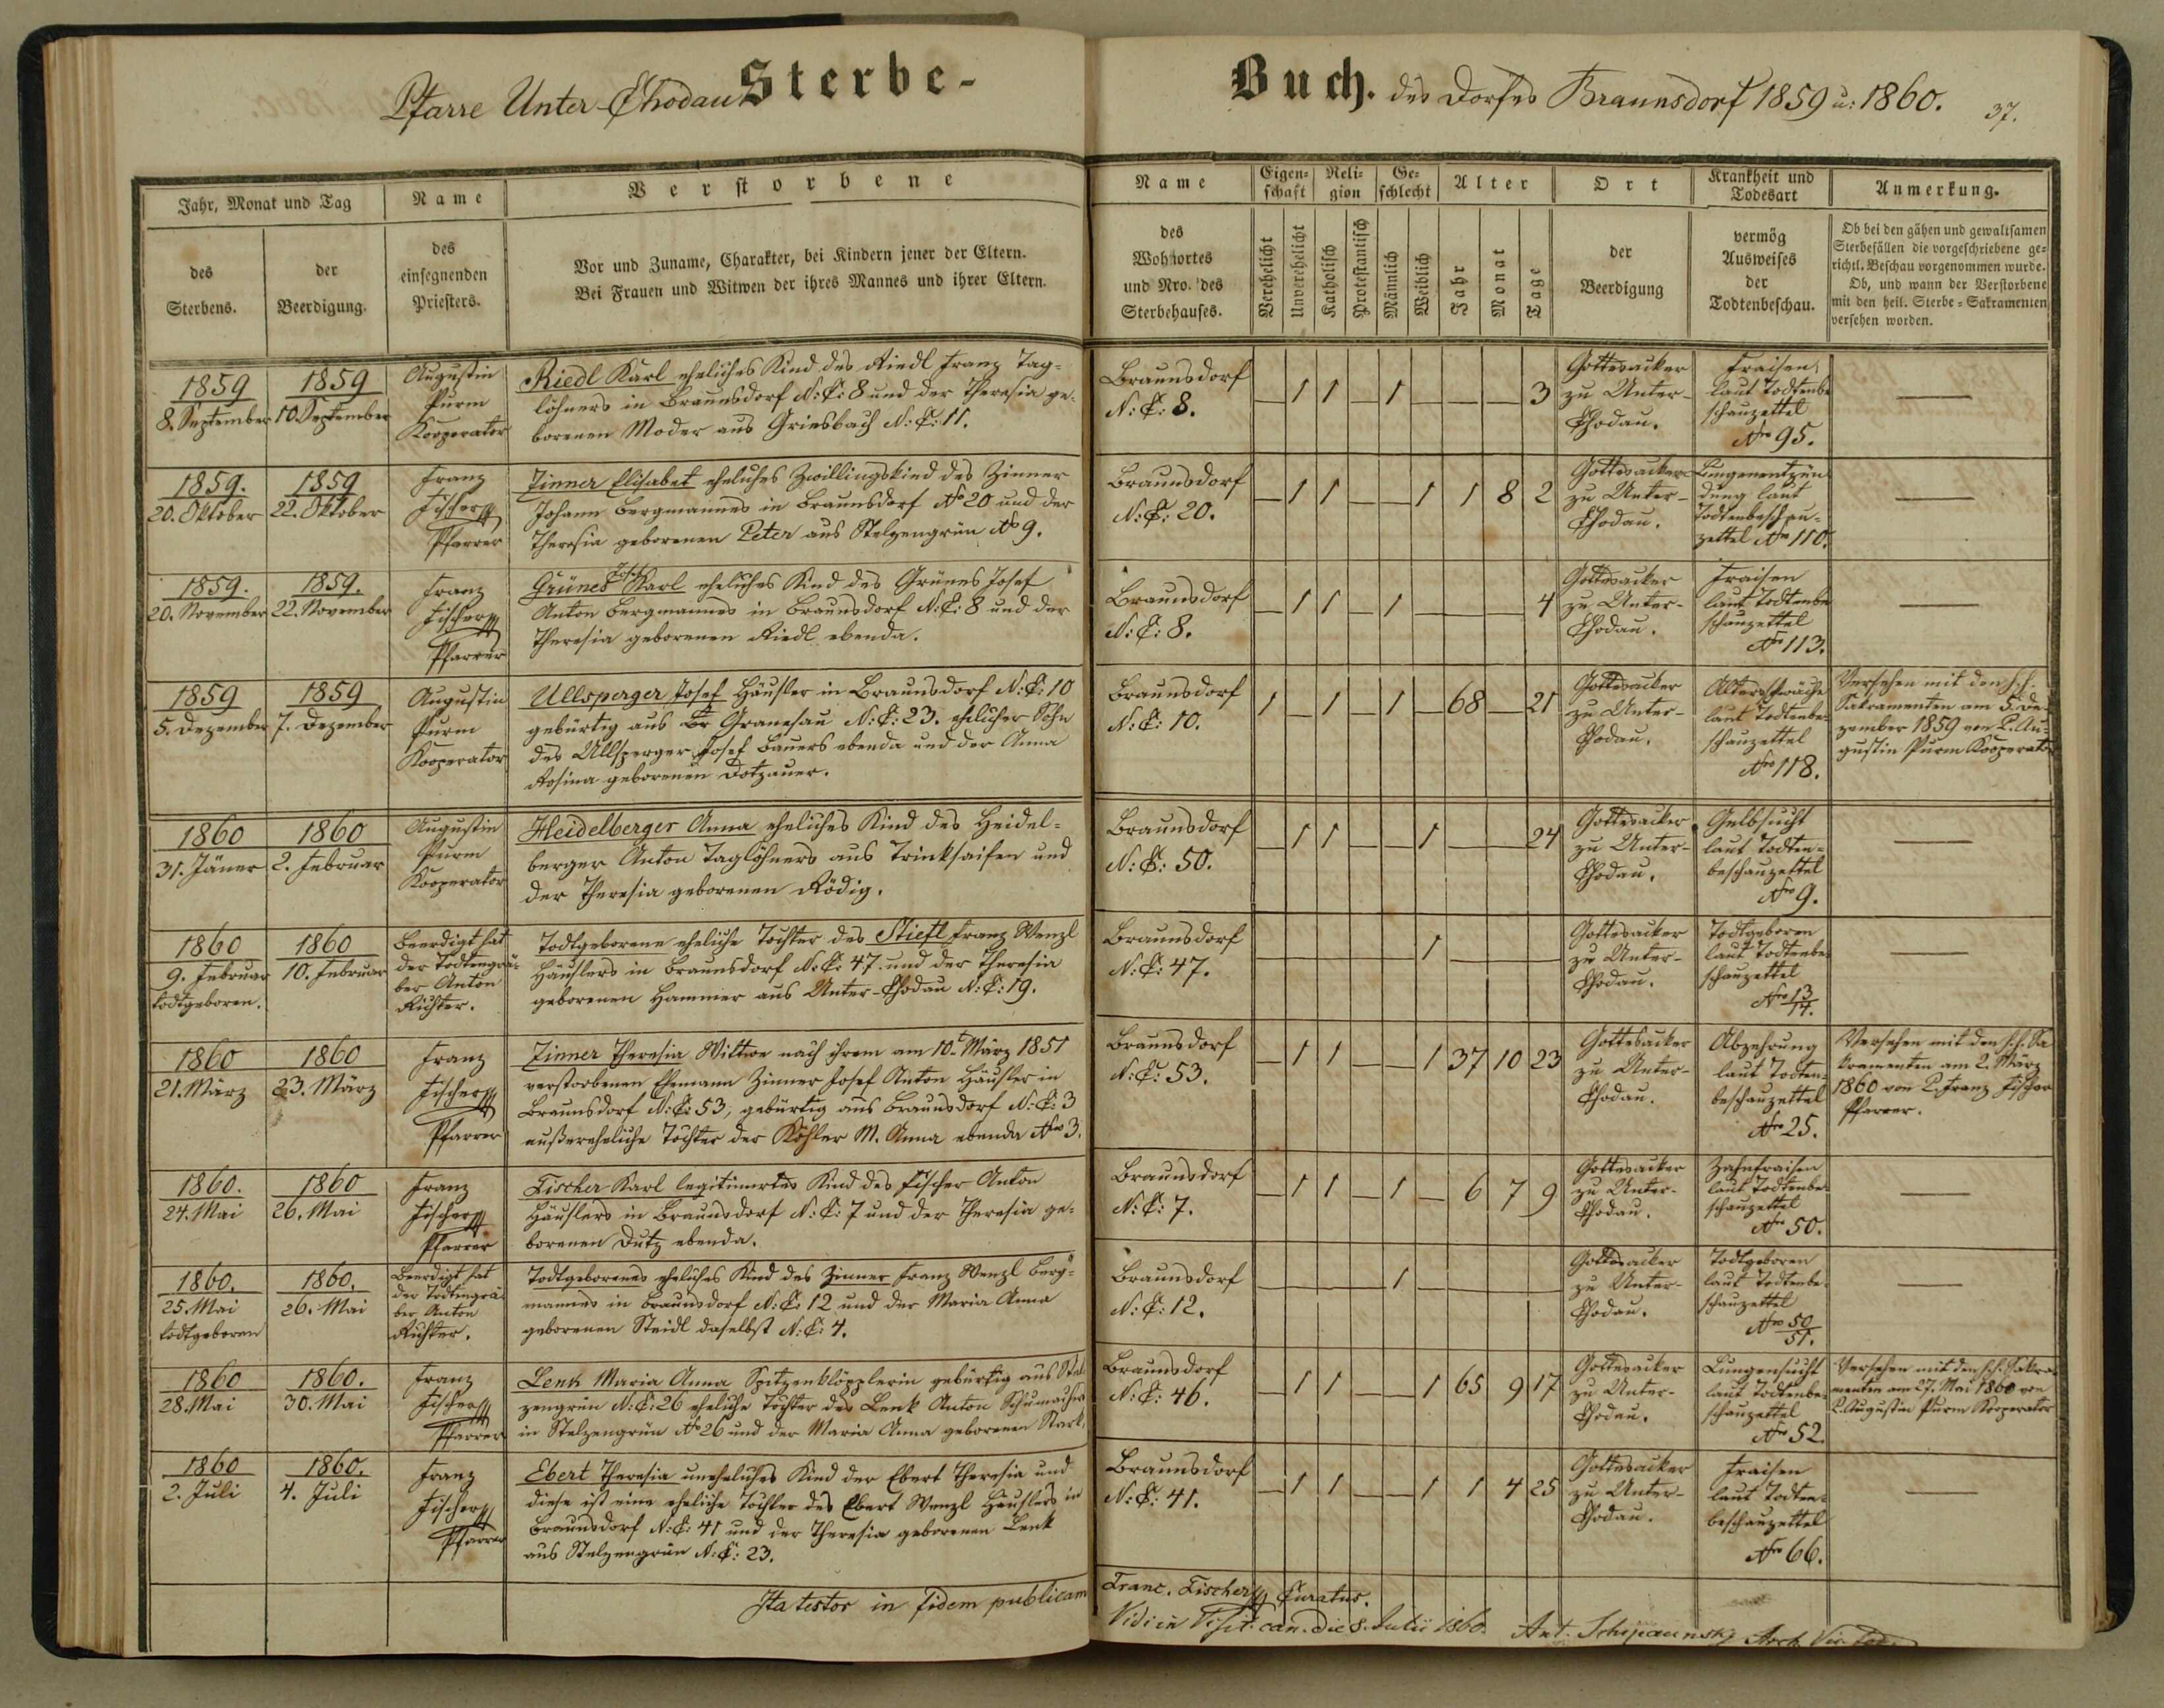 Pfarre Unter-Chodau Sterbe-
Jahr, Monat und Tag
des Sterbens.
der Beerdigung.
Name
des
einsegnenden
Priesters.
Verstorbene
Vor und Zuname, Charakter, bei Kindern jener der Eltern.
Bei Frauen und Witwen der ihres Mannes und ihrer Eltern.
1859
8. September
1859
10. September
Augustin
Purm
Kooperator
Riedl Karl eheliches Kind des Riedl Franz Tag-
löhners in Braunsdorf N: C: 8 und der Theresia ge-
borenen Moder aus Griesbach N: C: 11.
1859.
20. Oktober
1859
22. Oktober
Franz
Fischer
Pfarrer
Zinner Elisabet eheliches Zwillingskind des Zinner
Johann Bergmannes in Braunsdorf No 20 und der
Theresia geborenen Peter aus Stelzengrün No 9.
1859.
20. November
1859.
22. November
Franz
Fischer
Pfarrer
Josef
Grünes Karl eheliches Kind des Grünes Josef
Anton Bergmannes in Braunsdorf N: C: 8 und der
Theresia geborenen Riedl ebenda.
1859
5. Dezember
1859
7. Dezember
Augustin
Purm
Kooperator
Ullsperger Josef Häusler in Braunsdorf N: C: 10
gebürtig aus Granesau N: C: 23. ehelicher Sohn
des Ullsperger Josef Bauers ebenda und der Anna
Rosina geborenen Dotzauer.
1860
31. Jäner
1860
2. Februar
Augustin
Purm
Kooperator
Heidelberger Anna eheliches Kind des Heidel-
berger Anton Taglöhners aus Trinksaifen und
der Theresia geborenen Rödig.
1860
9. Februar
todtgeboren.
1860
10. Februar
Beerdigt hat
der Todtengrä-
ber Anton
Richter.
Todtgeborene eheliche Tochter des Stiefl Franz Wenzl
Häuslers in Braunsdorf N: C: 47 und der Theresia
geborenen Hammer aus Unter-Chodau N: C: 19.
1860
21. März
1860
23. März
Franz
Fischer
Pfarrer
Zinner Theresia Wittwe nach ihrem am 10t März 1851
verstorbenen Ehemann Zinner Josef Anton Häusler in
Braunsdorf N: C: 53, gebürtig aus Braunsdorf N: C: 3
außereheliche Tochter der Köhler M. Anna ebenda Nro 3.
1860.
24. Mai
1860
26. Mai
Franz
Fischer
Pfarrer
Fischer Karl legitimirtes Kind des Fischer Anton
Häuslers in Braunsdorf N: C: 7 und der Theresia ge-
borenen Dutz ebenda.
1860.
25. Mai
todtgeboren
1860.
26. Mai
Beerdigt hat
der Todtengrä-
ber Anton
Richter.
Todtgeborenes eheliches Kind des Zinner Franz Wenzl Berg-
mannes in Braunsdorf N: C: 12 und der Maria Anna
geborenen Steidl daselbst N: C: 4.
1860
28. Mai
1860.
30. Mai
Franz
Fischer
Pfarrer
Lenk Maria Anna Spitzenklöpplerin gebürtig aus Stel-
zengrün N: C: 26 eheliche Tochter des Lenk Anton Schumachers
in Stelzengrün No 26 und der Maria Anna geborenen Stark.
1860
2. Juli
1860.
4. Juli
Franz
Fischer
Pfarrer
Ebert Theresia uneheliches Kind der Ebert Theresia und
diese ist eine eheliche Tochter des Ebert Wenzl Häuslers in
Braunsdorf N: C: 41 und der Theresia geborenen Lenk
aus Stelzengrün N: C: 23.
Ita testor in fidem publicam
Buch. des Dorfes Braunsdorf 1859 u: 1860. 37.
Name
des
Wohnortes
und Nro. des
Sterbehauses.
Eigen-
schaft
Verehelicht
Unverehelicht
Reli-
gion
Katholisch
Protestantisch
Ge-
schlecht
Männlich
Weiblich
Alter
Jahr
Monat
Tage
Ort
der
Beerdigung
Krankheit und
Todesart
vermög
Ausweises
der
Todtenbeschau.
Anmerkung.
Ob bei den gähen und gewaltsamen
Sterbefällen die vorgeschriebene ge-
richtl. Beschau vorgenommen wurde.
Ob, und wann der Verstorbene
mit den heil. Sterbe-Sakramenten
versehen worden.
Braunsdorf
N: C: 8.
— 1 1 — 1 — — — 3
Gottesacker
zu Unter-
Chodau.
Fraisen,
laut Todtenbe
schauzettel
Nro 95.
—
Braunsdorf
N: C: 20.
— 1 1 — — 1 1 8 2
Gottesacker
zu Unter-
Chodau.
Lungenentzün
dung laut
Todtenbeschau-
zettel Nro 110.
—
Braunsdorf
N: C: 8.
— 1 1 — 1 — — — 4
Gottesacker
zu Unter-
Chodau.
Fraisen
laut Todtenbe
schauzettel
No 113.
—
Braunsdorf
N: C: 10.
1 — 1 — 1 — 68 — 21
Gottesacker
zu Unter-
Chodau.
Altersschwäche
laut Todtenbe-
schauzettel
Nro 118.
Versehen mit den h. h.
Sakramenten am 5. De-
zember 1859 von P. Au-
gustin Purm Kooperator
Braunsdorf
N: C: 50.
— 1 1 — — 1 — — 24
Gottesacker
zu Unter-
Chodau.
Gelbsucht
laut Todten-
beschauzettel
Nro 9.
—
Braunsdorf
N: C: 47.
— — — — — 1 — — —
Gottesacker
zu Unter-
Chodau.
Todtgeboren
laut Todtenbe
schauzettel
Nro 13/14.
—
Braunsdorf
N: C: 53.
— 1 1 — — 1 37 10 23
Gottesacker
zu Unter-
Chodau.
Abzehrung
laut Todten-
beschauzettel
Nro 25.
Versehen mit den h. h. Sa
kramenten am 2. März
1860 von P. Franz Fischer
Pfarrer.
Braunsdorf
N: C: 7.
— 1 1 — 1 — 6 7 9
Gottesacker
zu Unter-
Chodau.
Zahnfraisen
laut Todtenbe-
schauzettel
Nro 50.
—
Braunsdorf
N: C: 12.
— — — — 1 — — — —
Gottesacker
zu Unter-
Chodau.
Todtgeboren
laut Todtenbe-
schauzettel
Nro 50/51.
—
Braunsdorf
N: C: 46.
— 1 1 — — 1 65 9 17
Gottesacker
zu Unter-
Chodau.
Lungensucht
laut Todtenbe-
schauzettel
Nro 52.
Versehen mit den h. h. Sakra-
menten am 27. Mai 1860 von
P. Augustin Purm Kooperator
Braunsdorf
N: C: 41.
— 1 1 — — 1 1 4 25
Gottesacker
zu Unter-
Chodau.
Fraisen
laut Todten-
beschauzettel
Nro 66.
—
Franc. Fischer Curatus.
Vidi in Visit. can. die 8. Julii 1860. Ant.